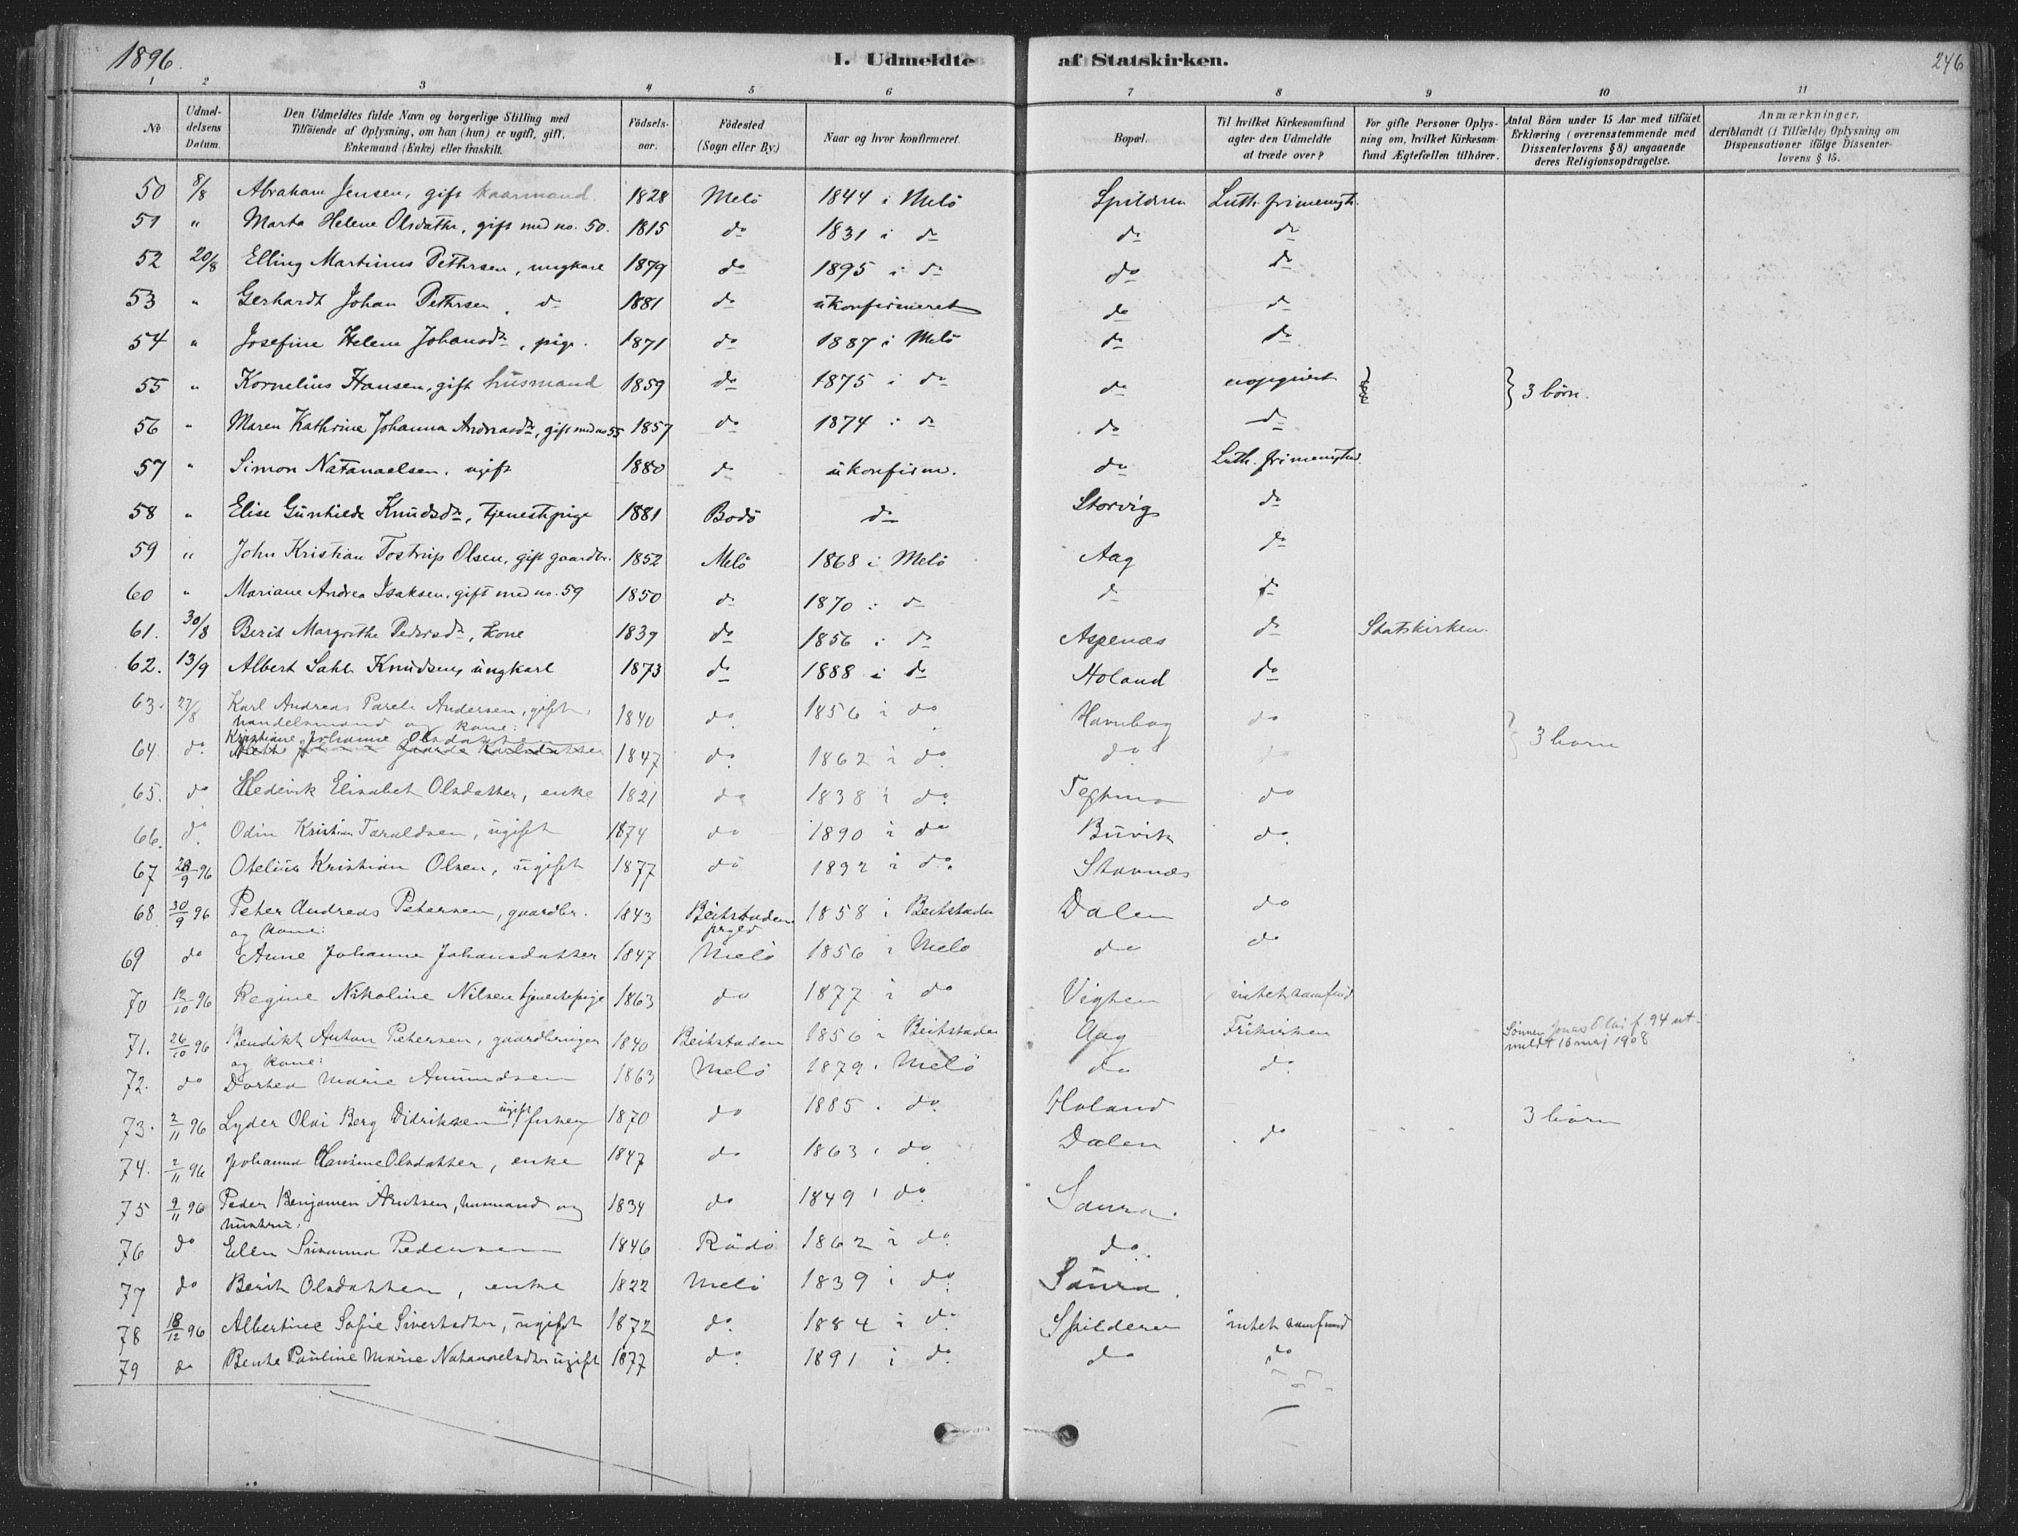 1896.
I. Udmeldte af Statskirken.
246
1 2 3 4 5 6 7 8 9 10 11
No
Udmeldelsens Datum.
Den Udmeldtes fulde Navn og borgerlige Stilling med
Tilföiende af Oplysning, om han (hun) er ugift, gift,
Enkemand (Enke) eller fraskilt.
Födselsaar.
Födested
(Sogn eller By.)
Naar og hvor konfirmeret.
Bopæl.
Til hvilket Kirkesamfund
agter den Udmeldte
at træde over?
For gifte Personer Oplysning
om, hvilket Kirkesamfund
Ægtefællen tilhörer.
Antal Börn under 15 Aar med tilföiet
Erklæring (overensstemmende med
Dissenterlovens § 8) angaaende
deres Religionsopdragelse.
Anmærkninger,
deriblandt (i Tilfælde) Oplysning om
Dispensationer ifölge Dissenterlovens
§ 15.
50 8/8 Abraham Jensen, gift kaarmand 1828 Melö 1844 i Melö Spildren Luth. frimenigh.
51 " Marta Helene Olsdatter, gift med no. 50. 1815 do 1831 i do do do
52 20/8 Elling Martinus Pethrsen, ungkarl 1879 do 1895 i do do do
53 " Gerhardt Johan Pethrsen, do 1881 do ukonfirmeret do do
54 " Josefine Helene Johansdtr, pige. 1871 do 1887 i Melö do do
55 " Kornelius Hansen, gift husmand 1859 do 1875 i do do uopgivet } 3 börn.
56 " Maren Kathrine Johanna Andreasdtr, gift med no 55 1857 do 1874 i do do do
57 " Simon Natanaelsen, ugift 1880 do ukonfirm. do Luth. frimenighed.
58 " Elise Gunhilde Knudsdtr, tjenestepige 1881 Bodö do Storvig do
59 " John Kristian Tostrup Olsen, gift gaardbr. 1852 Melö 1868 i Melö Aag do
60 " Mariane Andrea Isaksen, gift med no. 59 1850 do 1870 i do do do
61. 30/8 Berit Margrethe Pedersdtr, kone 1839 do 1856 i do Aspenæs do Statskirken.
62. 13/9 Albert Sahl Knudsen, ungkarl 1873 do 1888 i do Holand do
63. 27/8 Karl Andreas Pareli Andersen, gift, 1840 do 1856 i do Havnbog do
handelsmand og kone:
Kristiane Johanne Olsdatter
64. do 1847 do 1862 i do do do } 3 born
65. do Hedevik Elisabet Olsdatter, enke 1821 do 1838 i do do
66. do Odin Kristian Taraldsen, ugift 1874 do 1890 i do Buvik do.
67 28/9 96 Otelius Kristian Olsen, ugift 1877 do 1892 i do. Stavnæs
68 30/9 96 Peter Andreas Petersen, gaardbr. 1843 Beitstaden prgld 1858 i Beitstaden Dalen do
og kone:
69 do Anne Johanne Johansdatter 1847 Melö 1856 i Melö do do
70 12/10 96 Regine Nikoline Nilsen tjenestepige 1863 do 1877 i do Vigten intet samfund
71. 26/10 96 Bendikt Anton Petersen, gaardbruger 1840 Beitstaden 1856 i Beitstaden Aag Frikirken Sönnen Jonas Olai f. 94 utmeldt
16 maj 1908
og kone:
72. do Dorhea Marie Amundsen 1863 Melö 1879 i Melö do do.
73. 2/11 96 Lyder Olai Berg Didriksen ugift, fisker 1870 do 1885 i do. Holand 3 börn
74. 2/11 96 Johanna Hansine Olsdatter, enke 1847 do 1863 i do Dalen do
75 9/11 96 Peder Benjamen Arntsen, husmand og 1834 do 1849 i do Saura.
hustru:
76 do Ellen Susanna Pedersen 1846 Rödö 1862 i do do.
77 do Berit Olsdatter, enke 1822 Melö 1839 i do Saura.
78 18/12 96 Albertine Sofie Sivertsdtr, ugift 1872 do. 1884 i do Spilderen intet samfund
79 do Bente Pauline Marie Natanaelsdtr ugift 1877 do. 1891 i do. do do